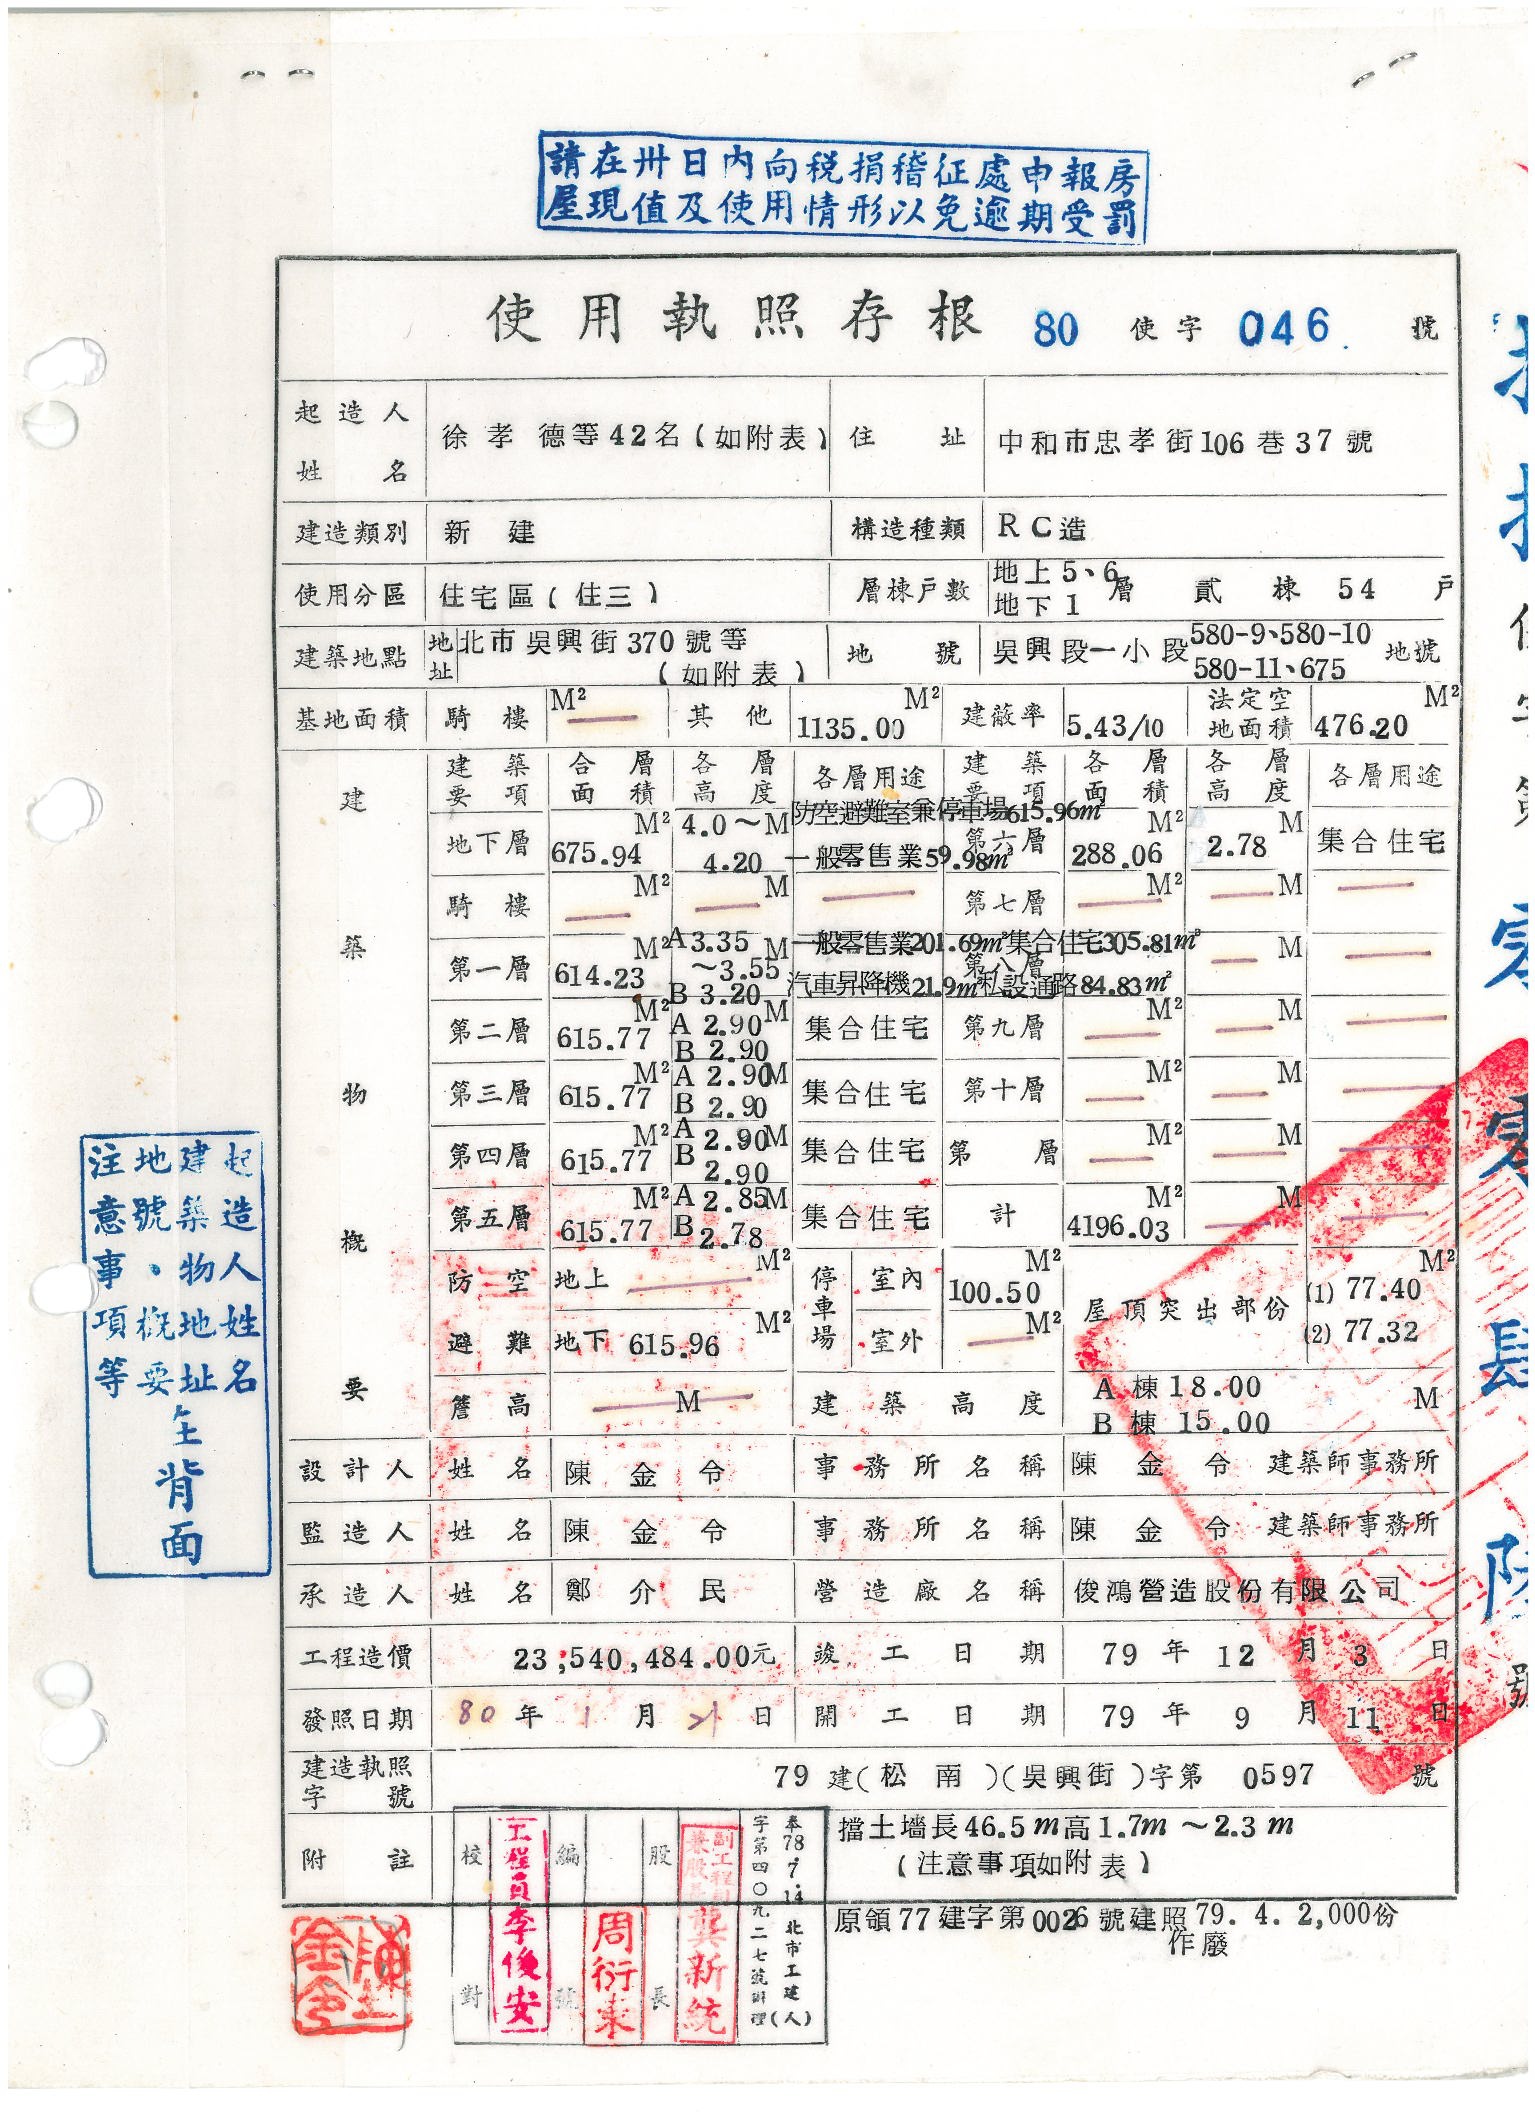 請在卅日內向稅捐稽征處申報房
屋現值及使用情形以免逾期受罰
使用執照存根 80 使字 046 號
起造人姓名 徐孝德等42名(如附表) 住址 中和市忠孝街106巷37號
建造類別 新建 構造種類 RC造
使用分區 住宅區(住三) 層棟戶數 地上5、6層 地下1 貳棟 54戶
建築地點 地址 北市吳興街370號等(如附表) 地號 吳興段一小段580-9、580-10 580-11、675地號
基地面積 騎樓 — M² 其他 1135.00 M² 建蔽率 5.43/10 法定空地面積 476.20 M²
建築物概要
建築要項 合層面積 各層高度 各層用途 建築要項 各層面積 各層高度 各層用途
地下層 675.94 M² 4.0～4.20 M 防空避難室兼停車場615.96㎡ 一般零售業59.98㎡ 第六層 288.06 M² 2.78 M 集合住宅
騎樓 — M² — M — 第七層 — M² — M —
第一層 614.23 M² A3.35～3.55 B 3.20 M 一般零售業201.69㎡集合住宅305.81㎡ 汽車昇降機21.9㎡私設通路84.83㎡ 第八層 — M —
第二層 615.77 M² A 2.90 B 2.90 M 集合住宅 第九層 — M² — M —
第三層 615.77 M² A 2.90 B 2.90 M 集合住宅 第十層 — M² — M —
第四層 615.77 M² A 2.90 B 2.90 M 集合住宅 第 層 — M² — M —
第五層 615.77 M² A 2.85 B 2.78 M 集合住宅 計 4196.03 M² — M —
防空避難 地上 — M² 停車場 室內 100.50 M² 屋頂突出部份 (1) 77.40 M²
地下 615.96 M² 室外 — M² (2) 77.32
簷高 — M 建築高度 A棟18.00 M
B棟 15.00
設計人 姓名 陳金令 事務所名稱 陳金令 建築師事務所
監造人 姓名 陳金令 事務所名稱 陳金令 建築師事務所
承造人 姓名 鄭介民 營造廠名稱 俊鴻營造股份有限公司
工程造價 23,540,484.00元 竣工日期 79年12月3日
發照日期 80年1月21日 開工日期 79年9月11日
建造執照字號 79建(松南)(吳興街)字第0597號
附註 擋土墻長46.5m高1.7m～2.3m
(注意事項如附表)
原領77建字第0026號建照 79.4.2,000份
作廢
校對 工程員李俊安
編號 周衍東
股長 副工程司兼股長龔新統
奉78.7.14北市工建(人)
字第四〇九二七號辦理
陳金令
起造人姓名
建築物地址
地號、概要
注意事項等
全背面
零零肆陸號